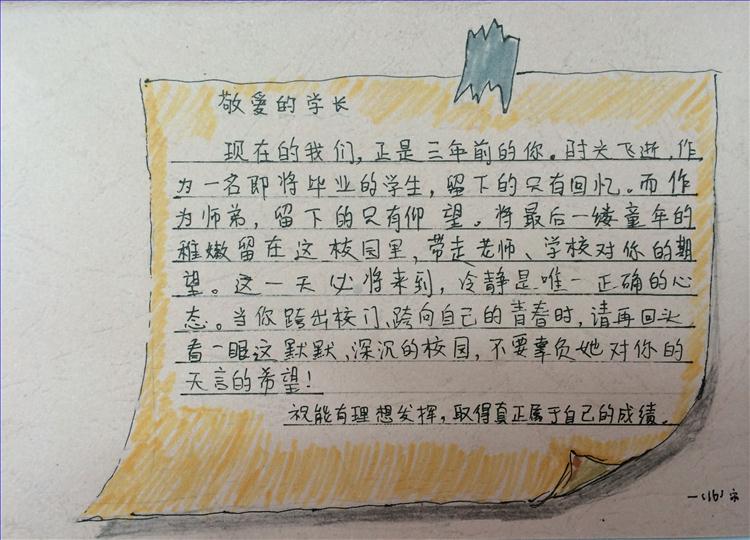 敬爱的学长
现在的我们，正是三年前的你。时光飞逝，作
为一名即将毕业的学生，留下的只有回忆。而作
为师弟，留下的只有仰望。将最后一缕童年的
稚嫩留在这校园里，带走老师、学校对你的期
望。这一天必将来到，冷静是唯一正确的心
态。当你跨出校门、跨向自己的青春时，请再回头
看一眼这默默、深沉的校园，不要辜负她对你的
无言的希望！
祝能有理想发挥，取得真正属于自己的成绩。